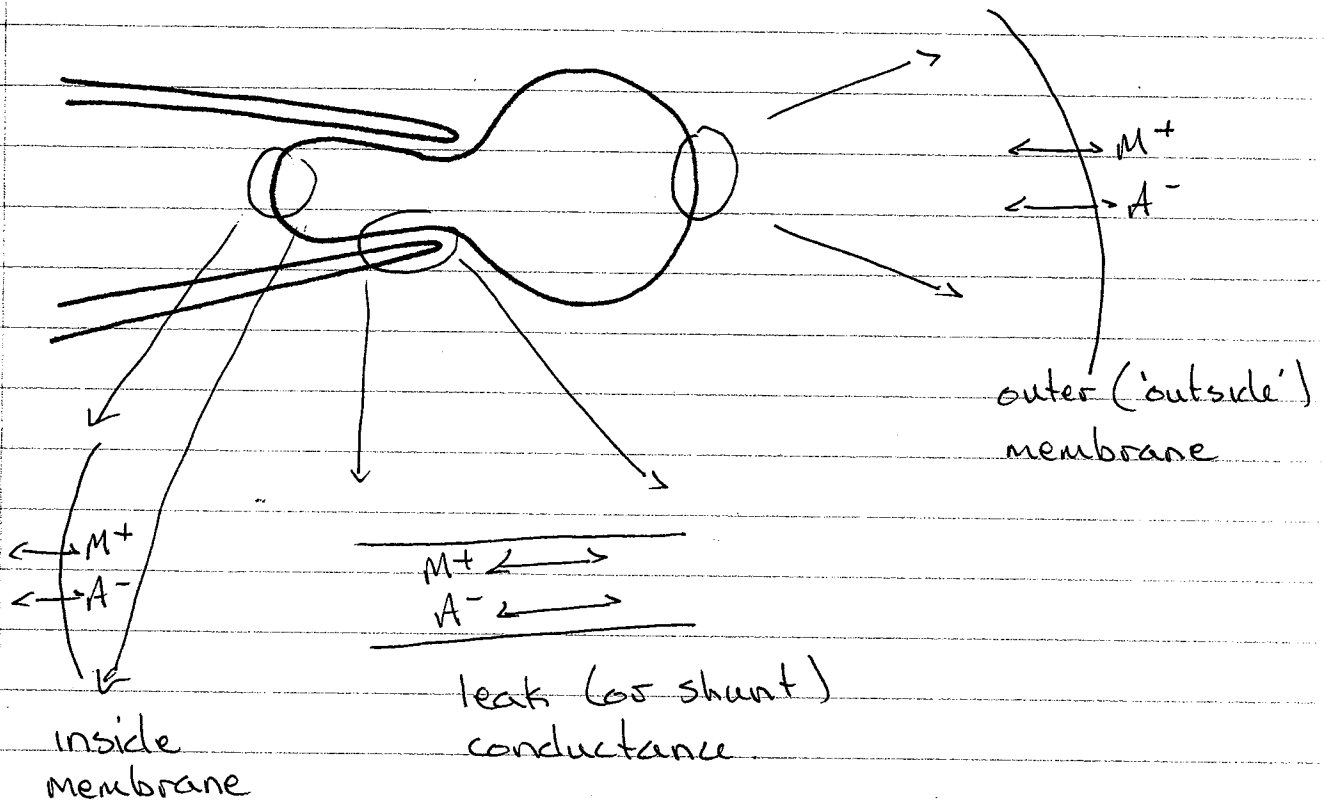 M⁺
A⁻
outer ('outside')
membrane
M⁺
A⁻
M⁺
A⁻
leak (or shunt)
conductance
inside
membrane